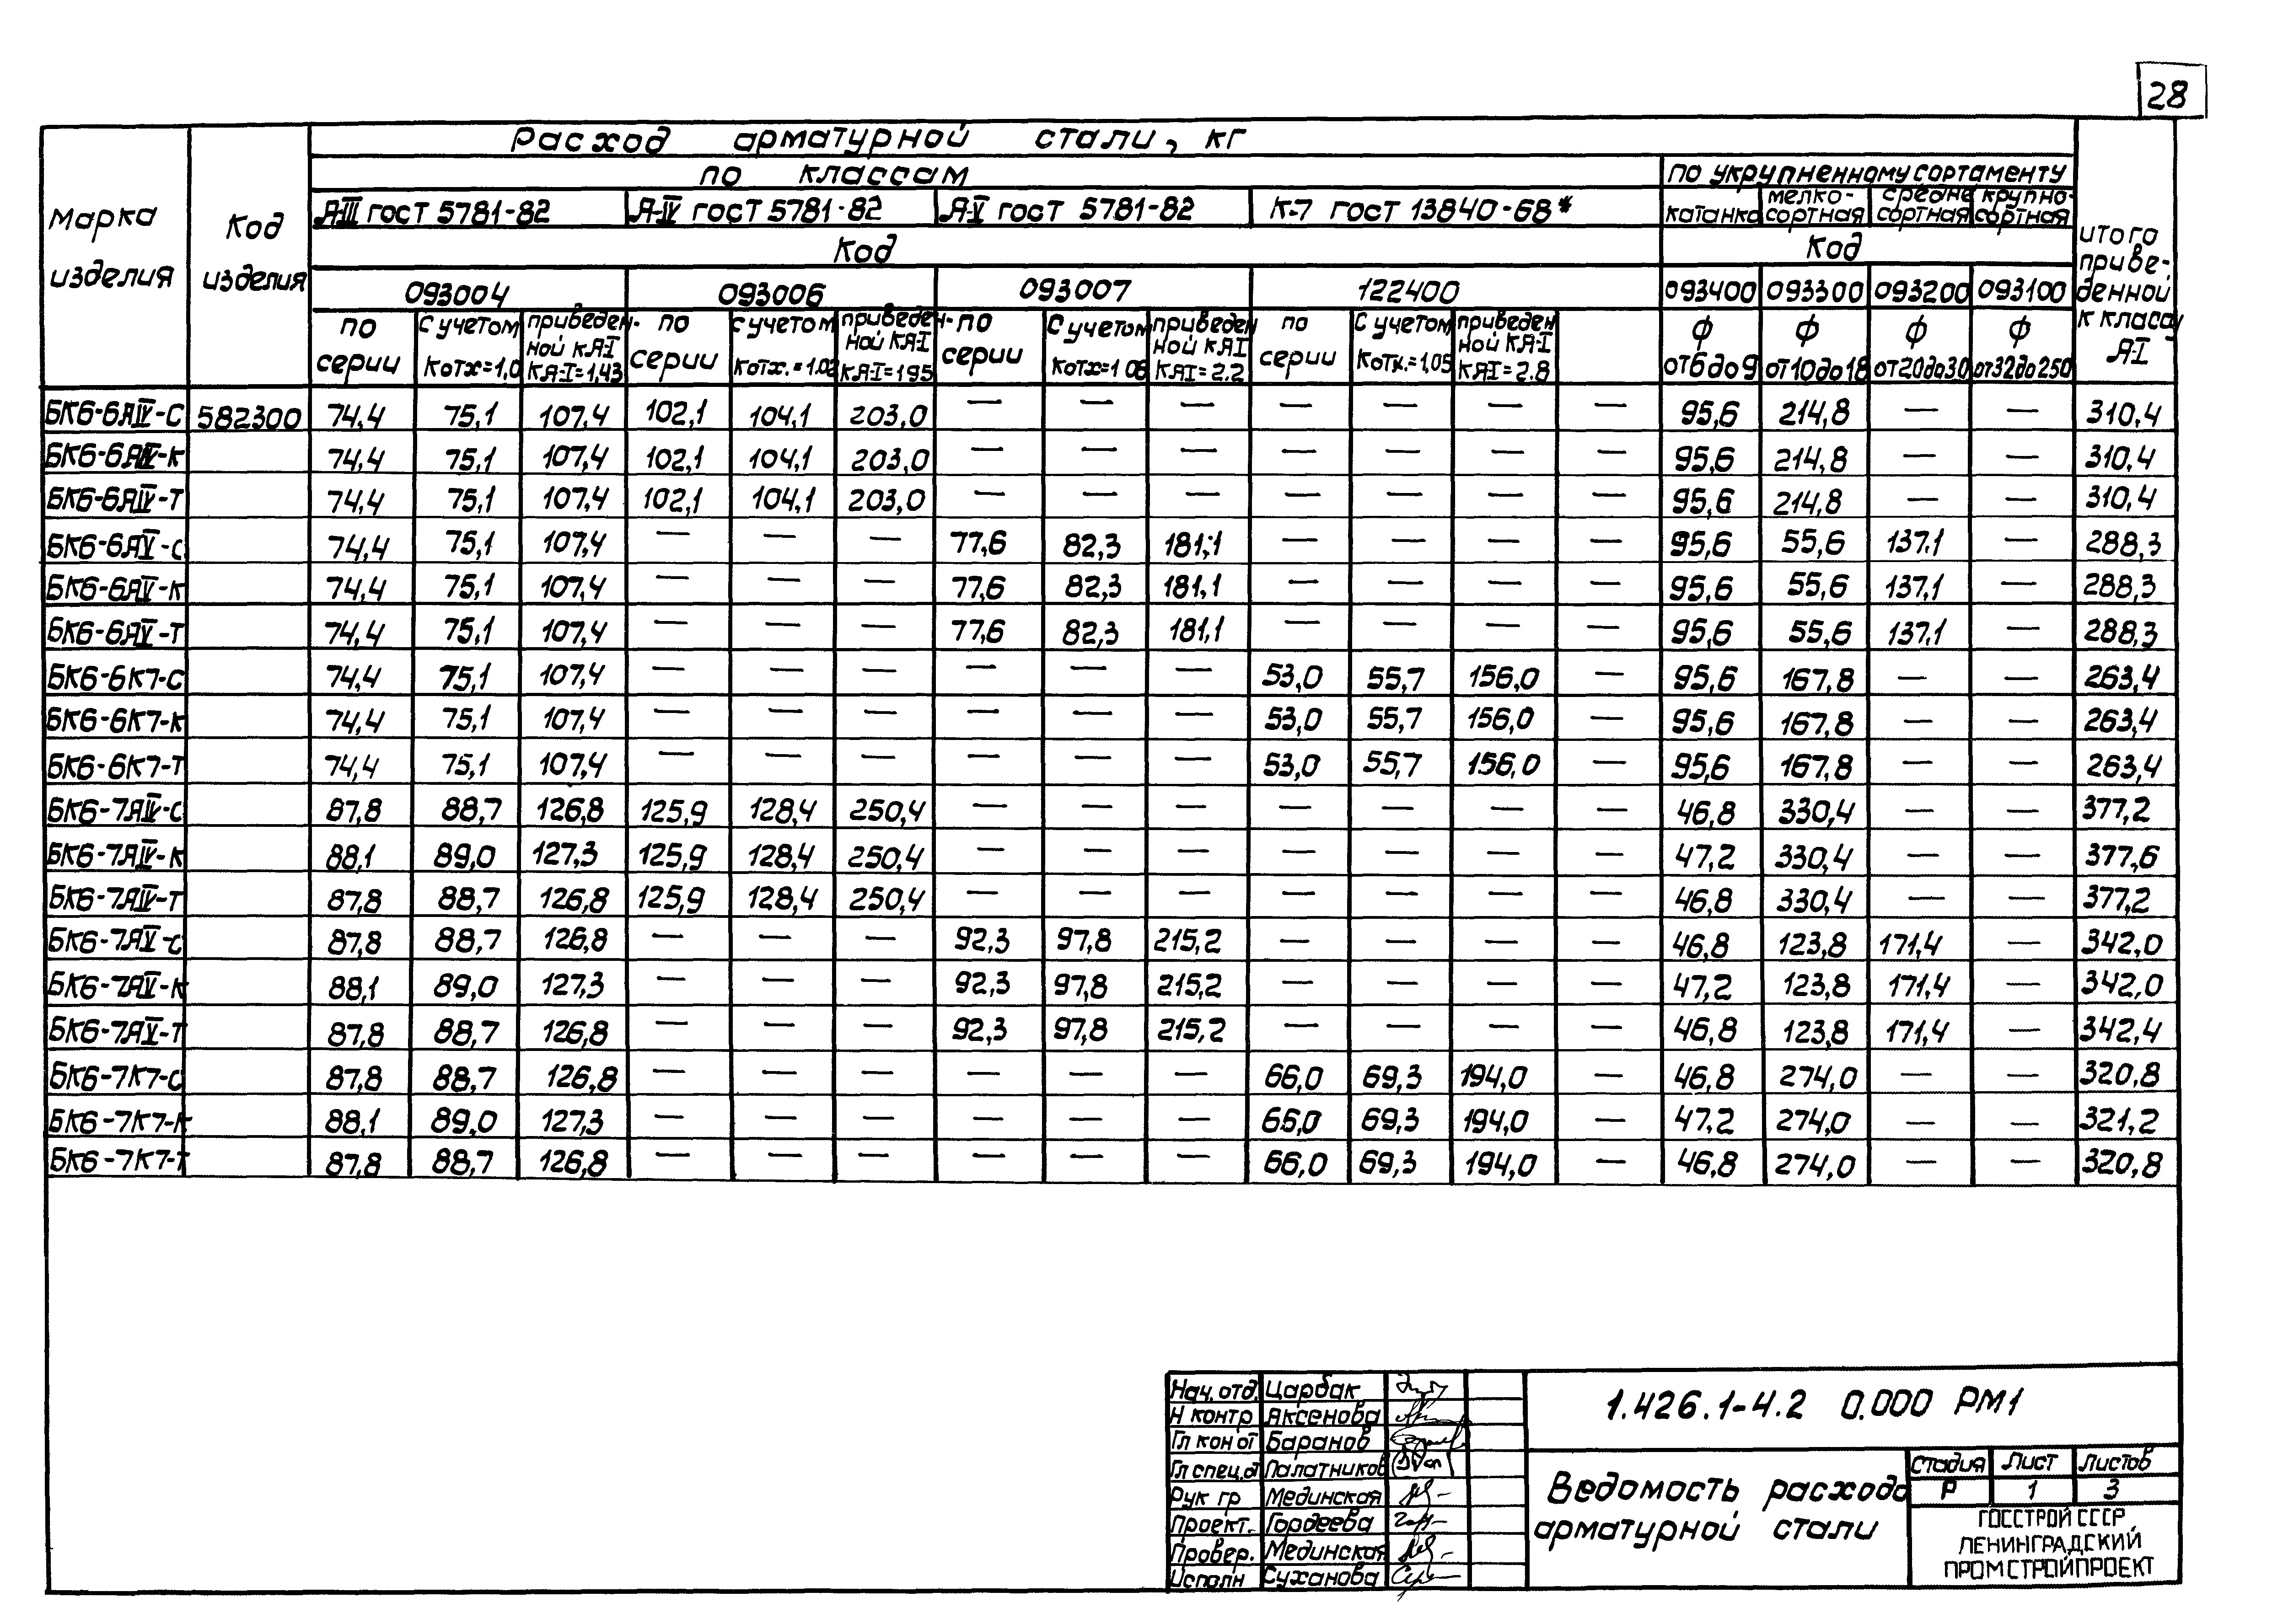 28
Расход арматурной стали, кг
по классам
по укрупненному сортаменту
Марка изделия
Код изделия
А-III ГОСТ 5781-82
А-IV ГОСТ 5781-82
А-V ГОСТ 5781-82
К-7 ГОСТ 13840-68*
катанка
мелко-сортная
средне сортная
крупно-сортная
итого приве-денной к классу А-I
Код
Код
093004 093006 093007 122400 093400 093300 093200 093100
по серии
С учетом Котх=1,0
приведен-ной кА-I КА-I=1,43
по серии
С учетом Котх.=1.02
приведен-ной кА-I КА-I=195
по серии
С учетом Котх=1 06
приведен ной кАI КАI=2.2
по серии
С учетом Котх.=1,05
приведен ной кА-I КАI=2.8
ф от6до9
ф от10до18
ф от20до30
ф от32до250
БК6-6АIV-С 582300 74,4 75,1 107,4 102,1 104,1 203,0 — — — — — — — 95,6 214,8 — — 310,4
БК6-6АIV-К 74,4 75,1 107,4 102,1 104,1 203,0 — — — — — — — 95,6 214,8 — — 310,4
БК6-6АIV-Т 74,4 75,1 107,4 102,1 104,1 203,0 — — — — — — — 95,6 214,8 — — 310,4
БК6-6АV-С 74,4 75,1 107,4 — — — 77,6 82,3 181,1 — — — — 95,6 55,6 137.1 — 288,3
БК6-6АV-К 74,4 75,1 107,4 — — — 77,6 82,3 181,1 — — — — 95,6 55,6 137,1 — 288,3
БК6-6АV-Т 74,4 75,1 107,4 — — — 77,6 82,3 181,1 — — — — 95,6 55,6 137,1 — 288,3
БК6-6К7-С 74,4 75,1 107,4 — — — — — — 53,0 55,7 156,0 — 95,6 167,8 — — 263,4
БК6-6К7-К 74,4 75,1 107,4 — — — — — — 53,0 55,7 156,0 — 95,6 167,8 — — 263,4
БК6-6К7-Т 74,4 75,1 107,4 — — — — — — 53,0 55,7 156,0 — 95,6 167,8 — — 263,4
БК6-7АIV-С 87,8 88,7 126,8 125,9 128,4 250,4 — — — — — — — 46,8 330,4 — — 377,2
БК6-7АIV-К 88,1 89,0 127,3 125,9 128,4 250,4 — — — — — — — 47,2 330,4 — — 377,6
БК6-7АIV-Т 87,8 88,7 126,8 125,9 128,4 250,4 — — — — — — — 46,8 330,4 — — 377,2
БК6-7АV-С 87,8 88,7 126,8 — — — 92,3 97,8 215,2 — — — — 46,8 123,8 171,4 — 342,0
БК6-7АV-К 88,1 89,0 127,3 — — — 92,3 97,8 215,2 — — — — 47,2 123,8 171,4 — 342,0
БК6-7АV-Т 87,8 88,7 126,8 — — — 92,3 97,8 215,2 — — — — 46,8 123,8 171,4 — 342,4
БК6-7К7-С 87,8 88,7 126,8 — — — — — — 66,0 69,3 194,0 — 46,8 274,0 — — 320,8
БК6-7К7-К 88,1 89,0 127,3 — — — — — — 66,0 69,3 194,0 — 47,2 274,0 — — 321,2
БК6-7К7-Т 87,8 88,7 126,8 — — — — — — 66,0 69,3 194,0 — 46,8 274,0 — — 320,8
Нач. отд. Царбак
Н контр Аксенова
Гл кон от Баранов
Гл спец.от Палатников
Рук гр Мединская
Проект. Гордеева
Провер. Мединская
Исполн Суханова
1.426.1-4.2 0.000 РМ1
Ведомость расхода
арматурной стали
Стадия Лист Листов
Р 1 3
ГОССТРОЙ СССР
ЛЕНИНГРАДСКИЙ
ПРОМСТРОЙПРОЕКТ